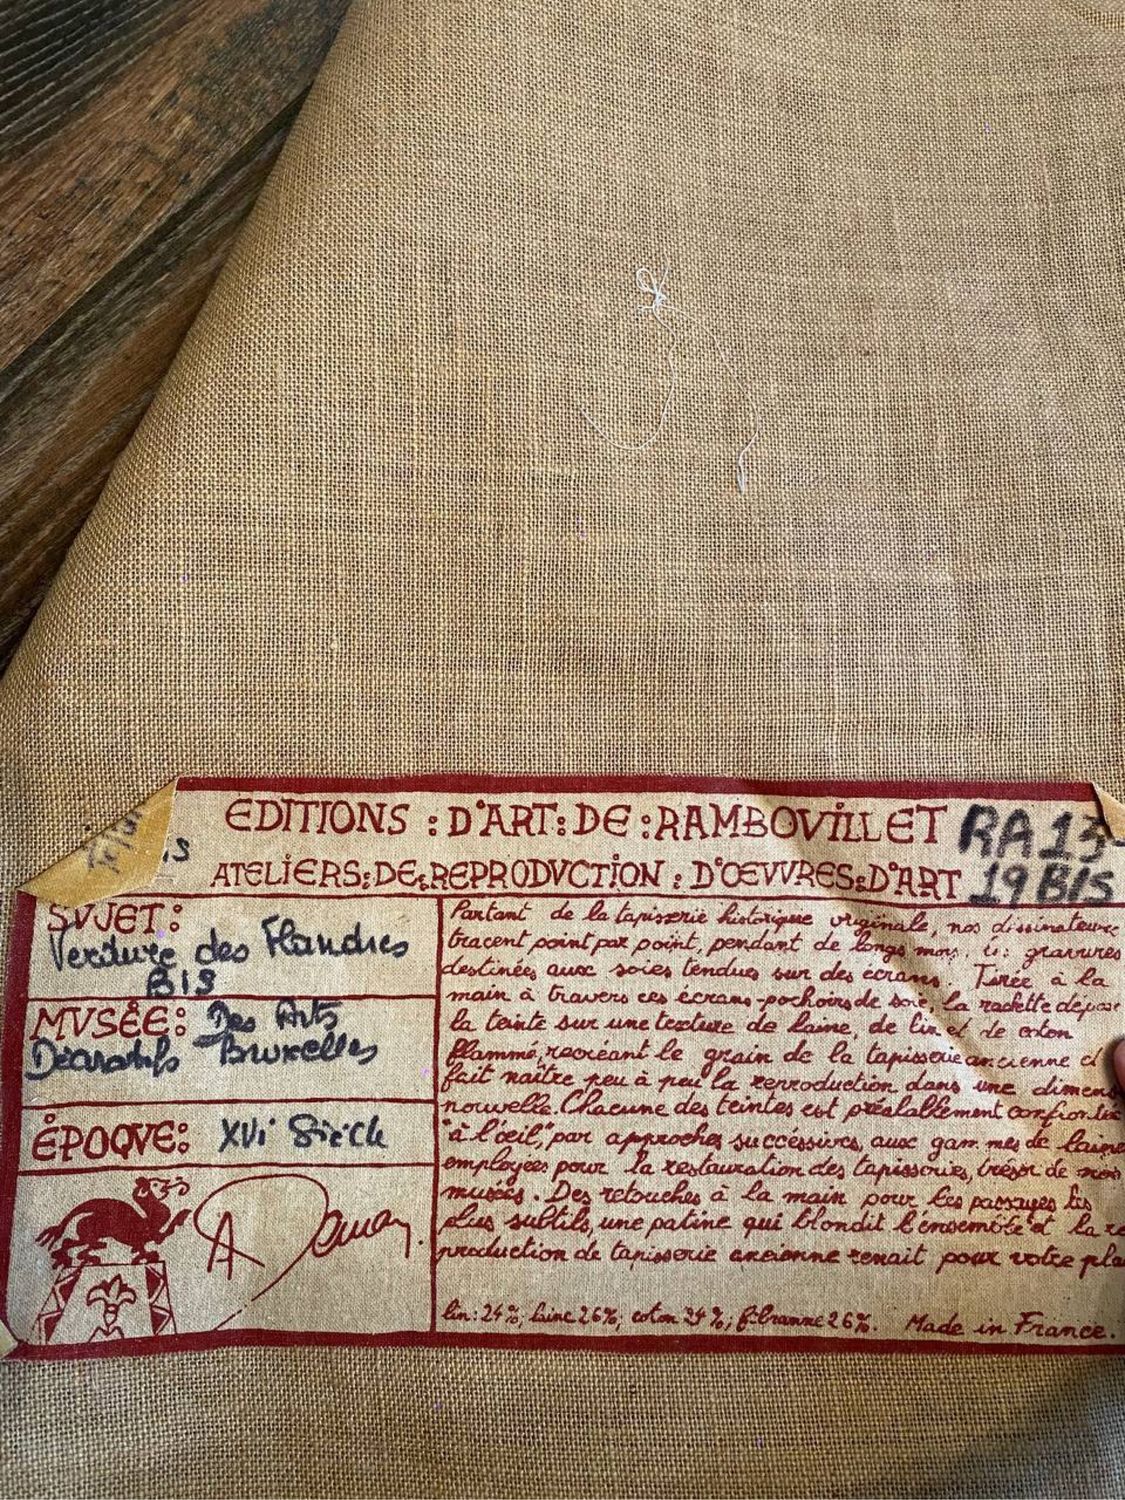 EDITIONS : D'ART : DE : RAMBOVILLET RA 13
ATELIERS : DE : REPRODVCTION : D'ŒVVRES : D'ART 19 BIS
SVJET :
Verdure des Flandres
BIS
MVSÉE : Des Arts
Decoratifs Bruxelles
ÉPOQVE : XVI Siècle
Partant de la tapisserie historique originale, nos dessinateurs
tracent point par point, pendant de longs mois, les gravures
destinées aux soies tendues sur des écrans. Tirée à la
main à travers ces écrans-pochoirs de soie, la raclette dépose
la teinte sur une texture de laine, de lin et de coton
flammé, recréant le grain de la tapisserie ancienne
fait naître peu à peu la reproduction dans une dimens
nouvelle. Chacune des teintes est préalablement
"à l'œil," par approches successives, aux gammes de laine
employées pour la restauration des tapisseries, trésor de nos
musées. Des retouches à la main pour les passages les
plus subtils, une patine qui blondit l'ensemble et la re
production de tapisserie ancienne renaît pour votre plai
lin : 24%; laine 26%; coton 24%; fibranne 26%. Made in France.